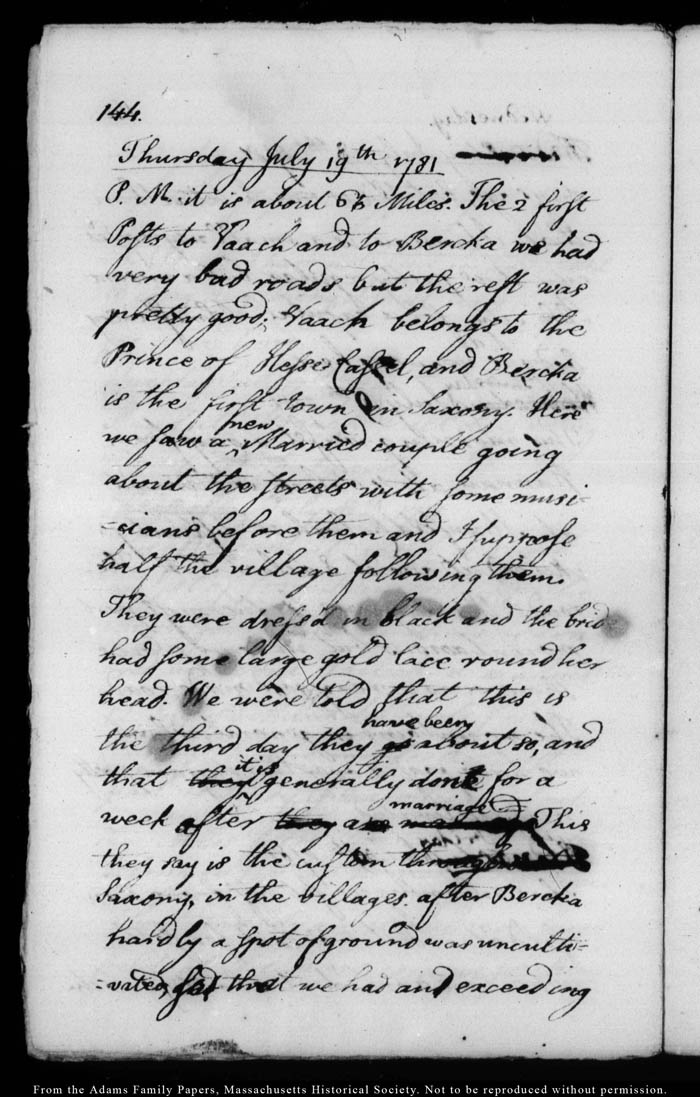 144.
Thursday July 19th 1781
P. M. it is about 6½ Miles. The 2 first
Posts to Vaach and to Bercka we had
very bad roads but the rest was
pretty good; Vaach belongs to the
Prince of Hesse Cassel, and Bercka
is the first town in Saxony. Here
we saw a new Married couple going
about the streets with some musi-
-cians before them and I suppose
half the village following them.
They were dress'd in black and the brid
had some large gold lace round her
head. We were told that this is
the third day they have been about so, and
that they it is generally done for a
week after they are marriage This
they say is the custom
Saxony, in the villages. after Bercka
hardly a spot of ground was unculti-
-vated, that we had and exceeding
From the Adams Family Papers, Massachusetts Historical Society. Not to be reproduced without permission.